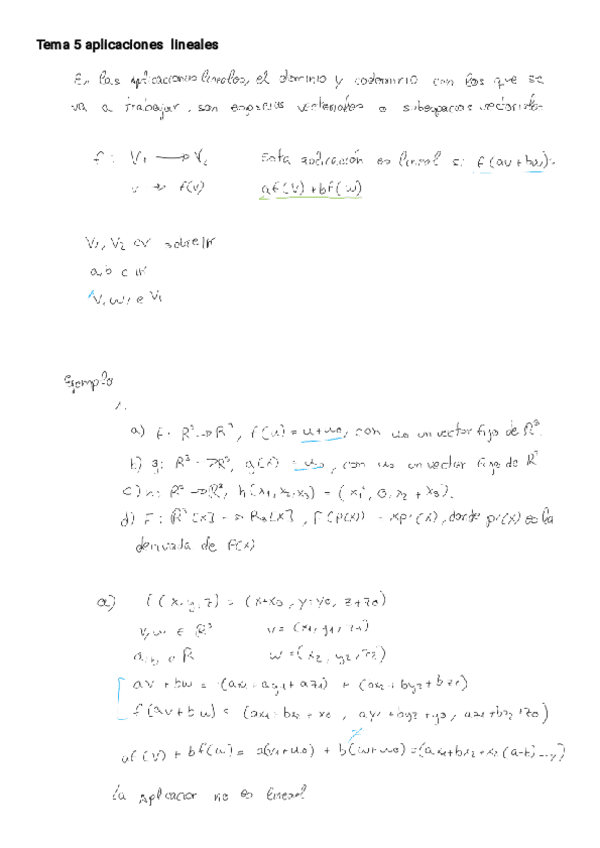 Tema 5 aplicaciones lineales
En las aplicaciones lineales, el dominio y codominio con los que se
va a trabajar, son espacios vectoriales o subespacios vectoriales
f: V₁ → V₂ Esta aplicación es lineal si f(av+bw)=
v → f(v) af(v)+bf(w)
V₁, V₂ ev sobre IK
a,b ∈ IK
v, w, ∈ V₁
Ejemplo
1.
a) f: R³→R³, f(u)=u+u₀, con u₀ un vector fijo de R³.
b) g: R³→R³, g(x)=u₀, con u₀ un vector fijo de R³
c) h: R³→R³, h(x₁,x₂,x₃) = (x₁, 0, x₂ + x₃).
d) F: [x] → [x], F(p(x)) = xp'(x), donde p'(x) es la
derivada de P(x)
a) f(x,y,z) = (x+x₀, y+y₀, z+z₀)
v,w ∈ R³ v=(x₁,y₁,z₁)
a,b ∈ R w=(x₂,y₂,z₂)
av+bw =
f(av+bw) =
af(v)+bf(w)= a(v+u₀) + b(w+u₀)=
La aplicacion no es lineal